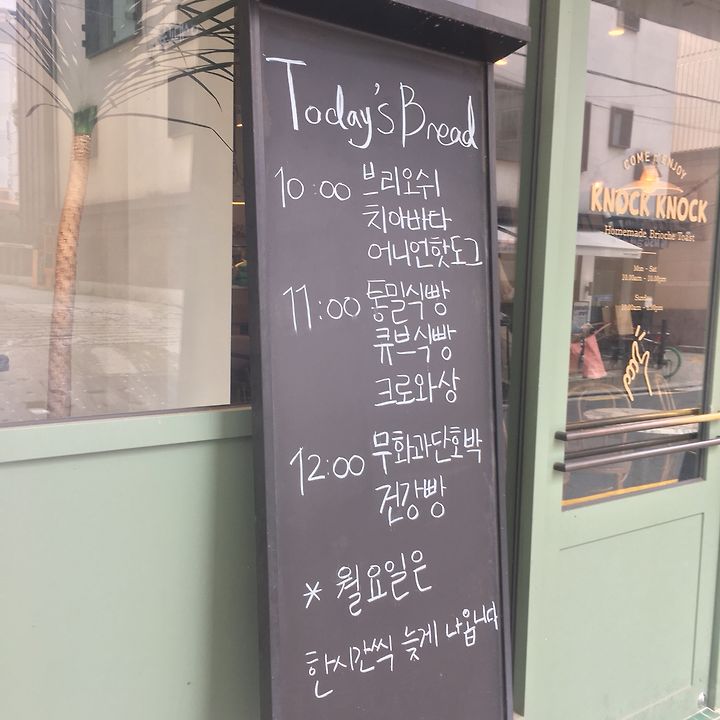 Today's Bread
10:00 브리오쉬
치아바타
어니언핫도그
11:00 통밀식빵
큐브식빵
크로와상
12:00 무화과단호박
건강빵
* 월요일은
한시간씩 늦게 나옵니다
COME & ENJOY
KNOCK KNOCK
Homemade Brioche Toast
Mon - Sat
10.00am - 10.00pm
Sunday